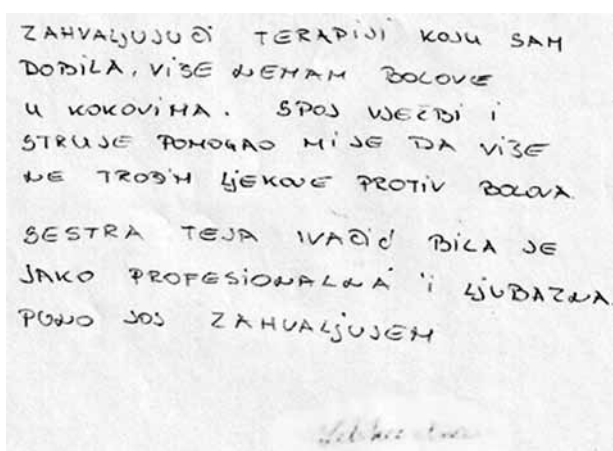 ZAHVALJUJUĆI TERAPIJI KOJU SAM
DOBILA, VIŠE NEMAM BOLOVE
U KUKOVIMA. SPOJ VJEŽBI I
STRUJE POMOGAO MI JE DA VIŠE
NE TROŠIM LJEKOVE PROTIV BOLOVA
SESTRA TEJA IVAČIĆ BILA JE
JAKO PROFESIONALNA I LJUBAZNA
PUNO JOJ ZAHVALJUJEM